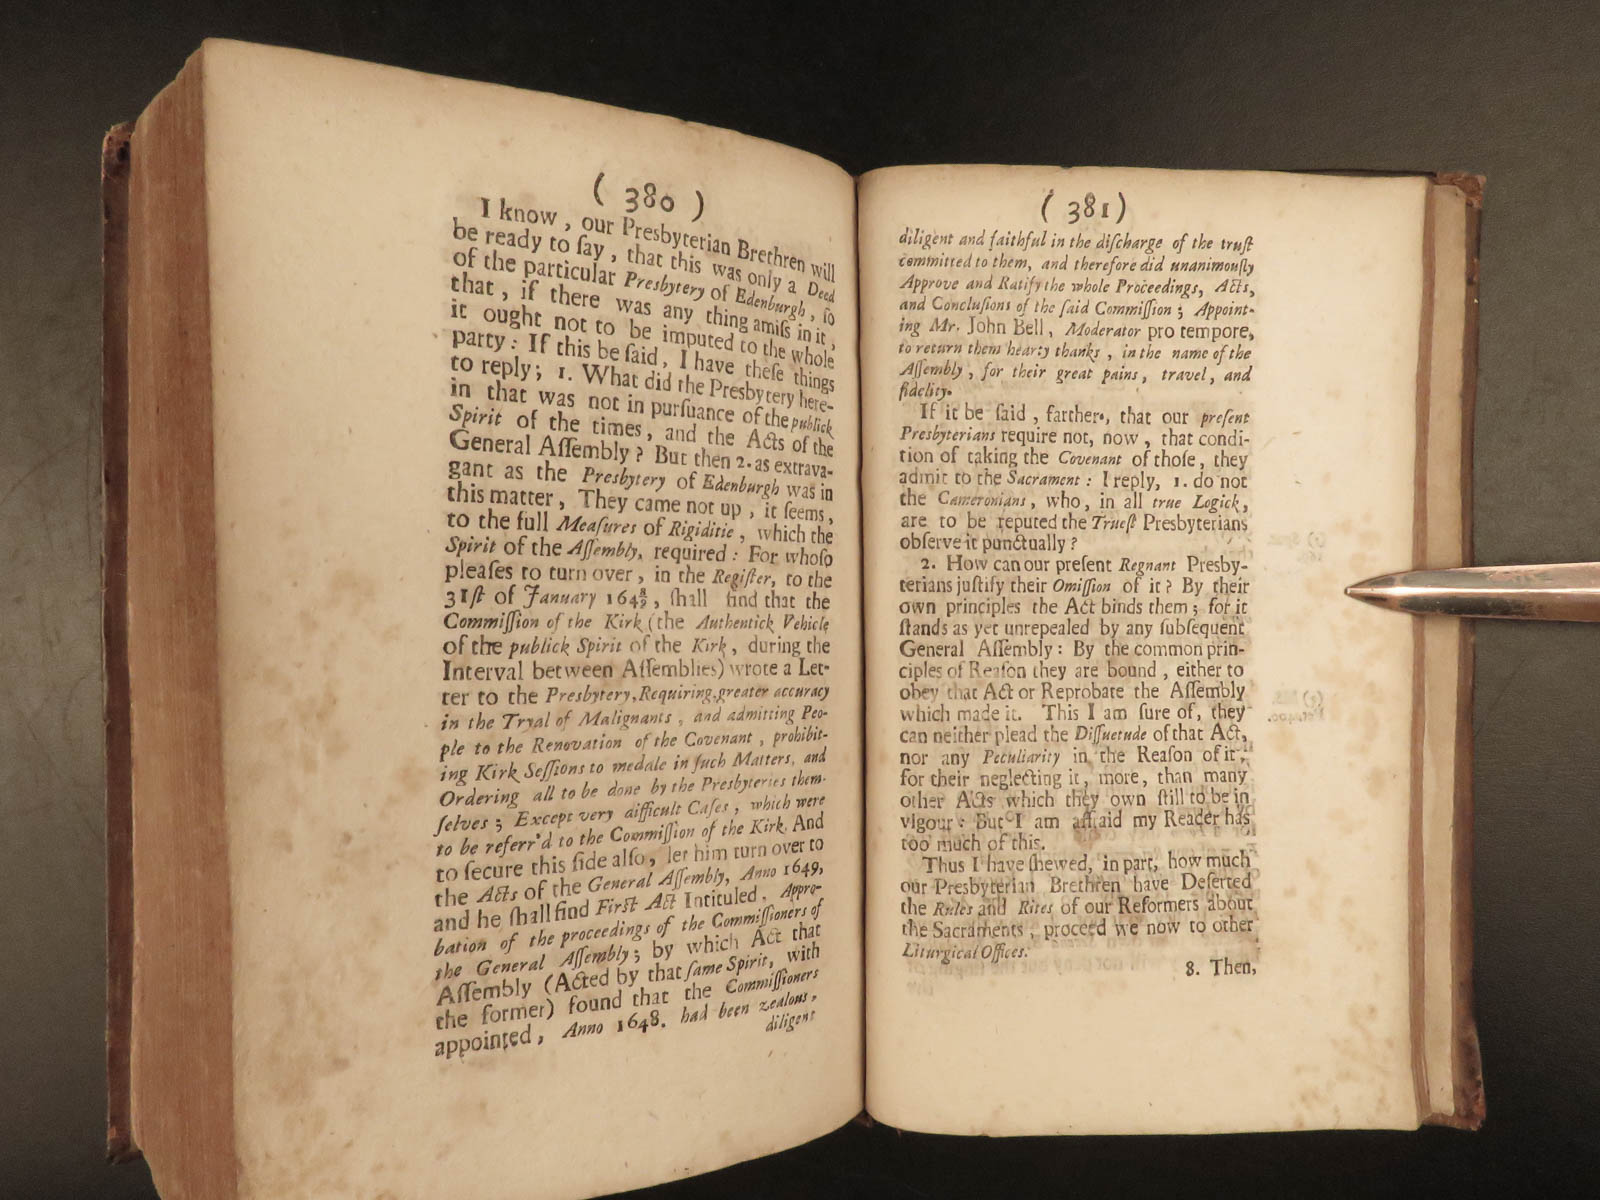 ( 380 )
I know, our Presbyterian Brethren will
be ready to ſay, that this was only a Deed
of the particular Presbytery of Edenburgh, ſo
that, if there was any thing amiſs in it,
it ought not to be imputed to the whole
party: If this be ſaid, I have theſe things
to reply; 1. What did the Presbytery here-
in that was not in purſuance of the publick
Spirit of the times, and the Acts of the
General Aſſembly? But then 2. as extrava-
gant as the Presbytery of Edenburgh was in
this matter, They came not up, it ſeems,
to the full Meaſures of Rigiditie, which the
Spirit of the Aſſembly, required: For whoſo
pleaſes to turn over, in the Regiſter, to the
31ſt of January 164 8/9, ſhall find that the
Commiſſion of the Kirk (the Authentick Vehicle
of the publick Spirit of the Kirk, during the
Interval between Aſſemblies) wrote a Let-
ter to the Presbytery, Requiring, greater accuracy
in the Tryal of Malignants, and admitting Peo-
ple to the Renovation of the Covenant, prohibit-
ing Kirk Seſſions to medale in ſuch Matters, and
Ordering all to be done by the Presbyteries them-
ſelves; Except very difficult Caſes, which were
to be referr'd to the Commiſſion of the Kirk. And
to ſecure this ſide alſo, let him turn over to
the Acts of the General Aſſembly, Anno 1649,
and he ſhall find Firſt Act Intituled, Appro-
bation of the proceedings of the Commiſſioners of
the General Aſſembly; by which Act that
Aſſembly (Acted by that ſame Spirit, with
the former) found that the Commiſſioners
appointed, Anno 1648. had been zealous,
diligent
( 381 )
diligent and faithful in the diſcharge of the truſt
committed to them, and therefore did unanimouſly
Approve and Ratify the whole Proceedings, Acts,
and Concluſions of the ſaid Commiſſion; Appoint-
ing Mr. John Bell, Moderator pro tempore,
to return them hearty thanks, in the name of the
Aſſembly, for their great pains, travel, and
fidelity.
If it be ſaid, farther, that our preſent
Presbyterians require not, now, that condi-
tion of taking the Covenant of thoſe, they
admit to the Sacrament: I reply, 1. do not
the Cameronians, who, in all true Logick,
are to be reputed the Trueſt Presbyterians
obſerve it punctually?
2. How can our preſent Regnant Presby-
terians juſtify their Omiſſion of it? By their
own principles the Act binds them; for it
ſtands as yet unrepealed by any ſubſequent
General Aſſembly: By the common prin-
ciples of Reaſon they are bound, either to
obey that Act or Reprobate the Aſſembly
which made it. This I am ſure of, they
can neither plead the Diſſuetude of that Act,
nor any Peculiarity in the Reaſon of it;
for their neglecting it, more, than many
other Acts which they own ſtill to be in
vigour: But I am affraid my Reader has
too much of this.
Thus I have ſhewed, in part, how much
our Presbyterian Brethren have Deſerted
the Rules and Rites of our Reformers about
the Sacraments, proceed we now to other
Liturgical Offices.
8. Then,